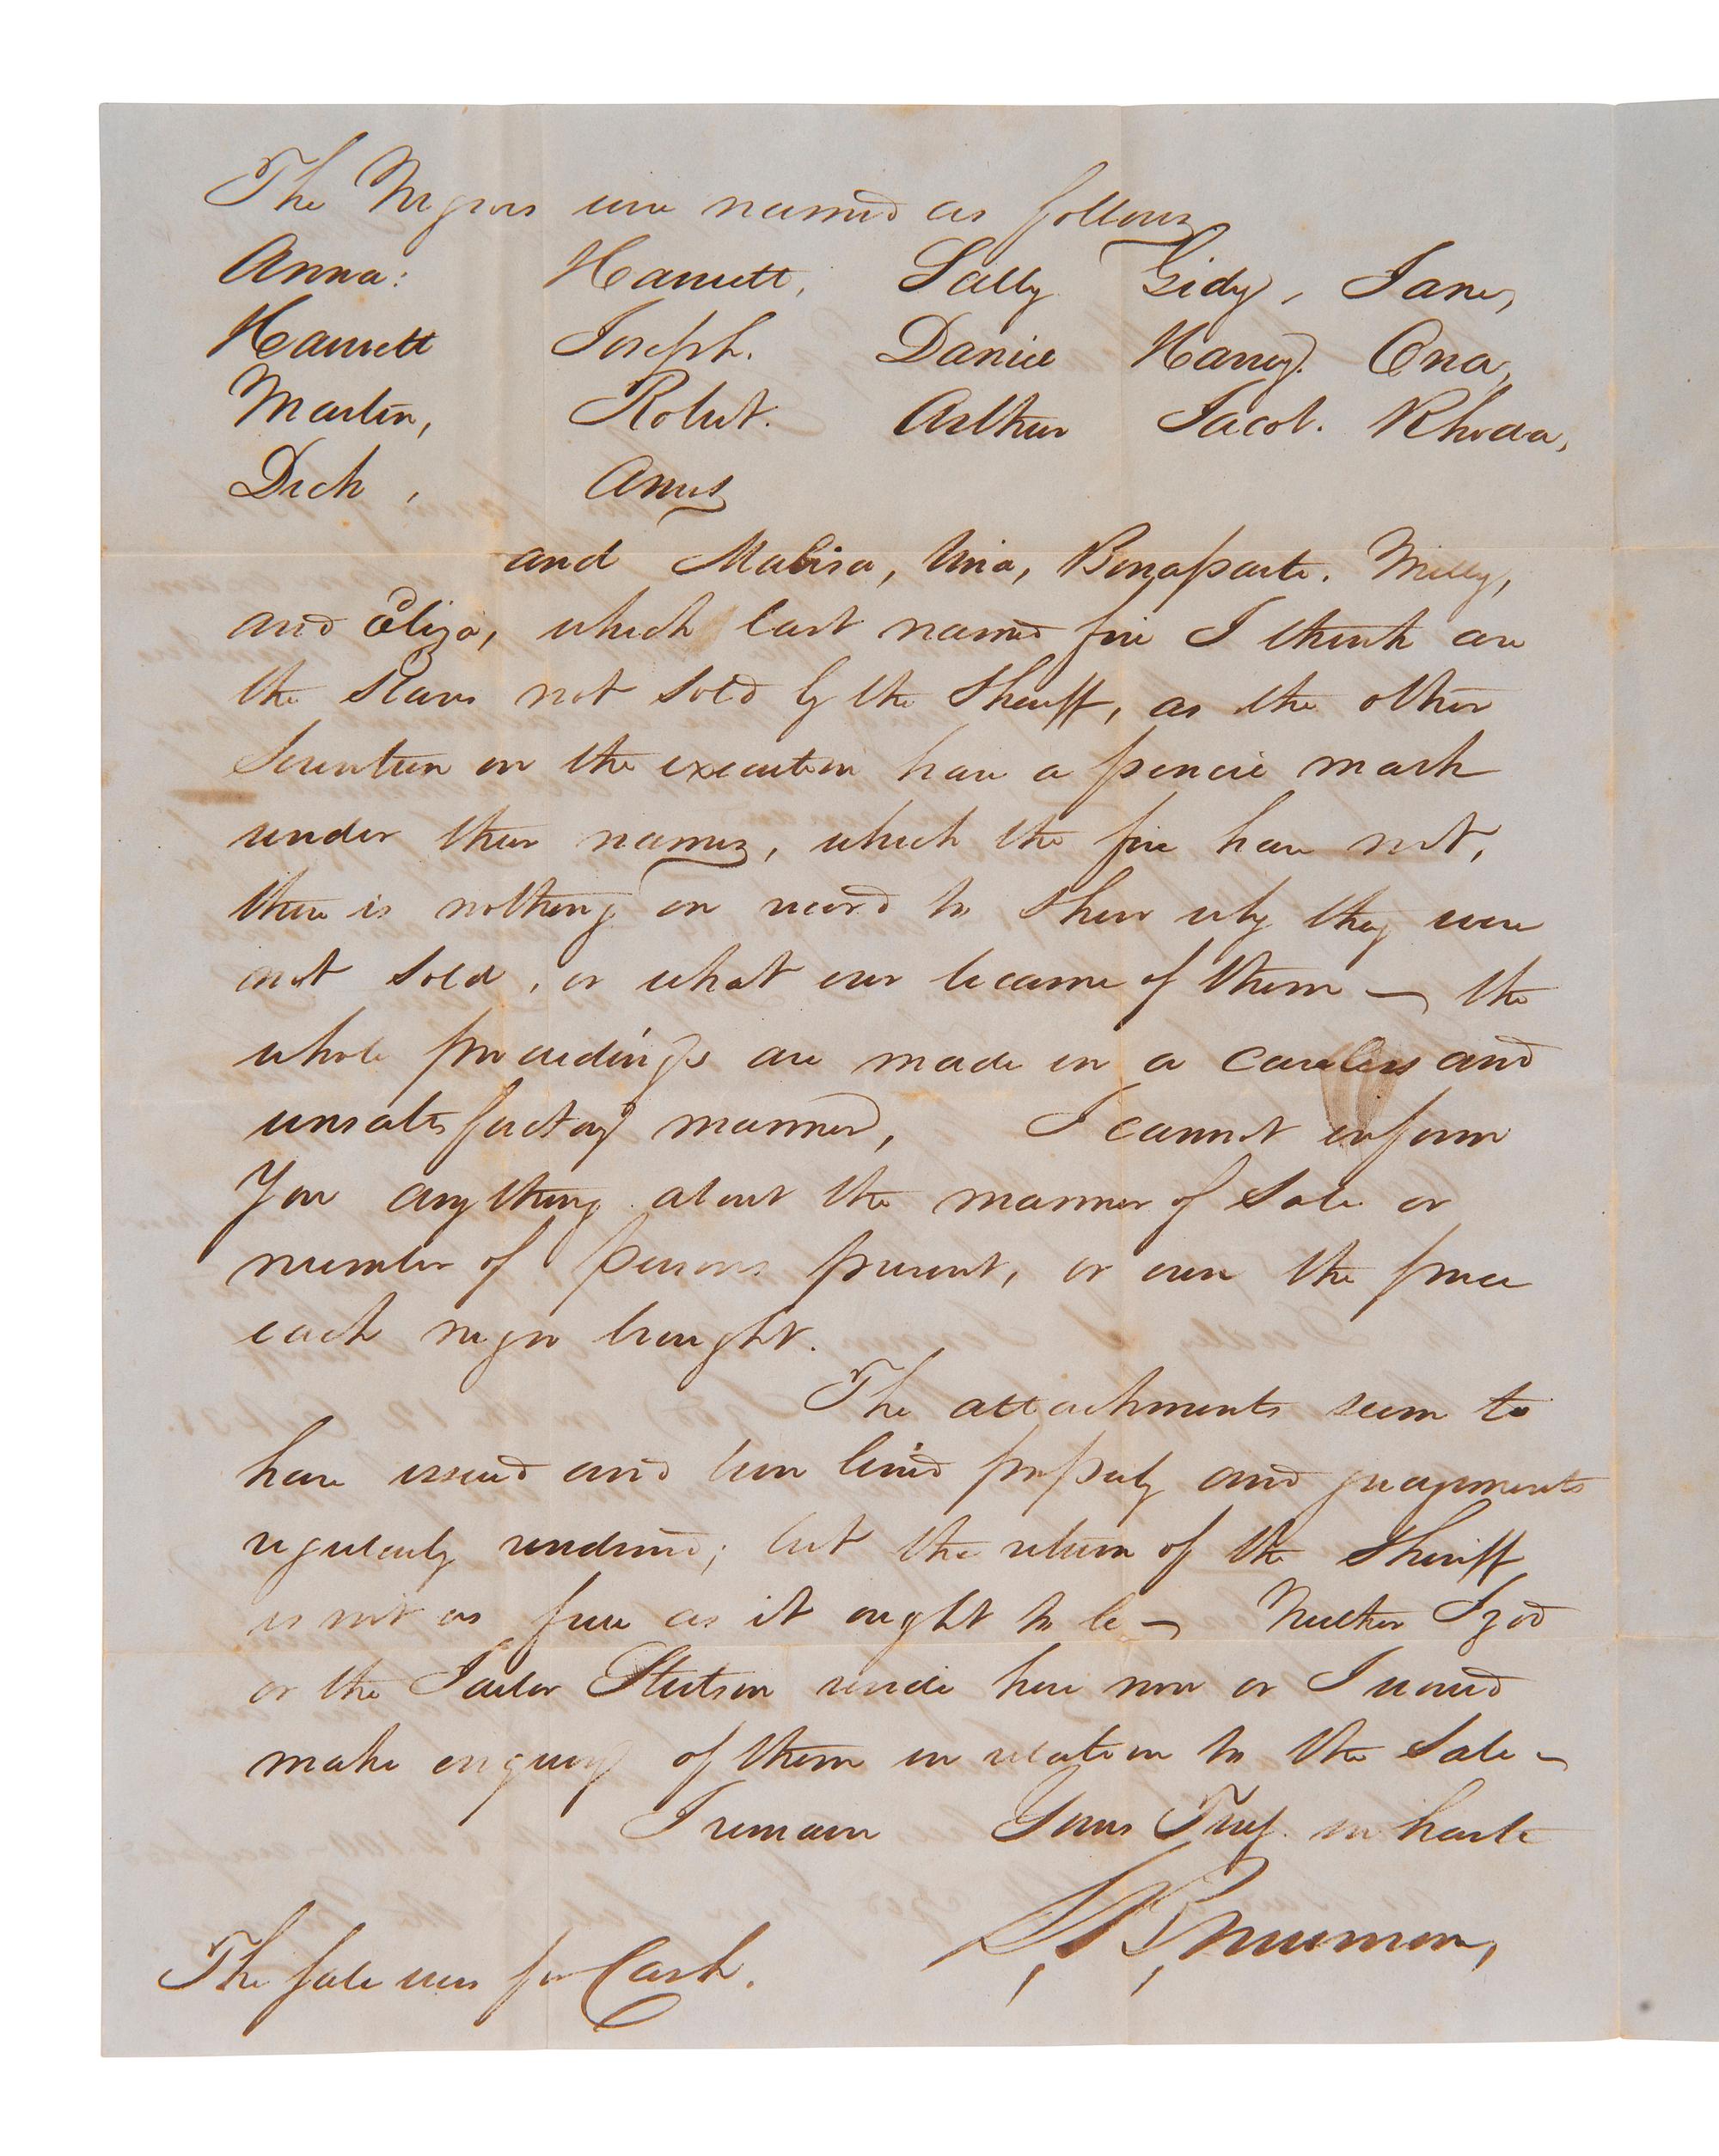 The Negroes were named as follows
Anna: Harriett, Sally Gidy, Jane,
Harriett Joseph. Daniel Harry. Ona,
Martin, Robert. Arthur Jacob. Rhoda,
Dick, Amos
and Malisa, Vina, Bonaparte. Milly,
and Eliza, which last named five I think are
the slaves not sold by the Sheriff, as the other
Seventeen on the execution have a pencil mark
under their names, which the five have not,
there is nothing on record to show why they were
not sold, or what ever became of them — the
whole proceedings are made in a careless and
unsatisfactory manner, I cannot inform
You anything about the manner of sale or
number of persons present, or even the price
each negro brought.
The attachments seem to
have issued and been levied properly and judgments
regularly rendered; but the return of the Sheriff
is not as full as it ought to be — Neither Izod
or the Jailor Stutson reside here now or I would
make enquiry of them in relation to the Sale —
I remain Yours Truly. in haste
The sale was for Cash.